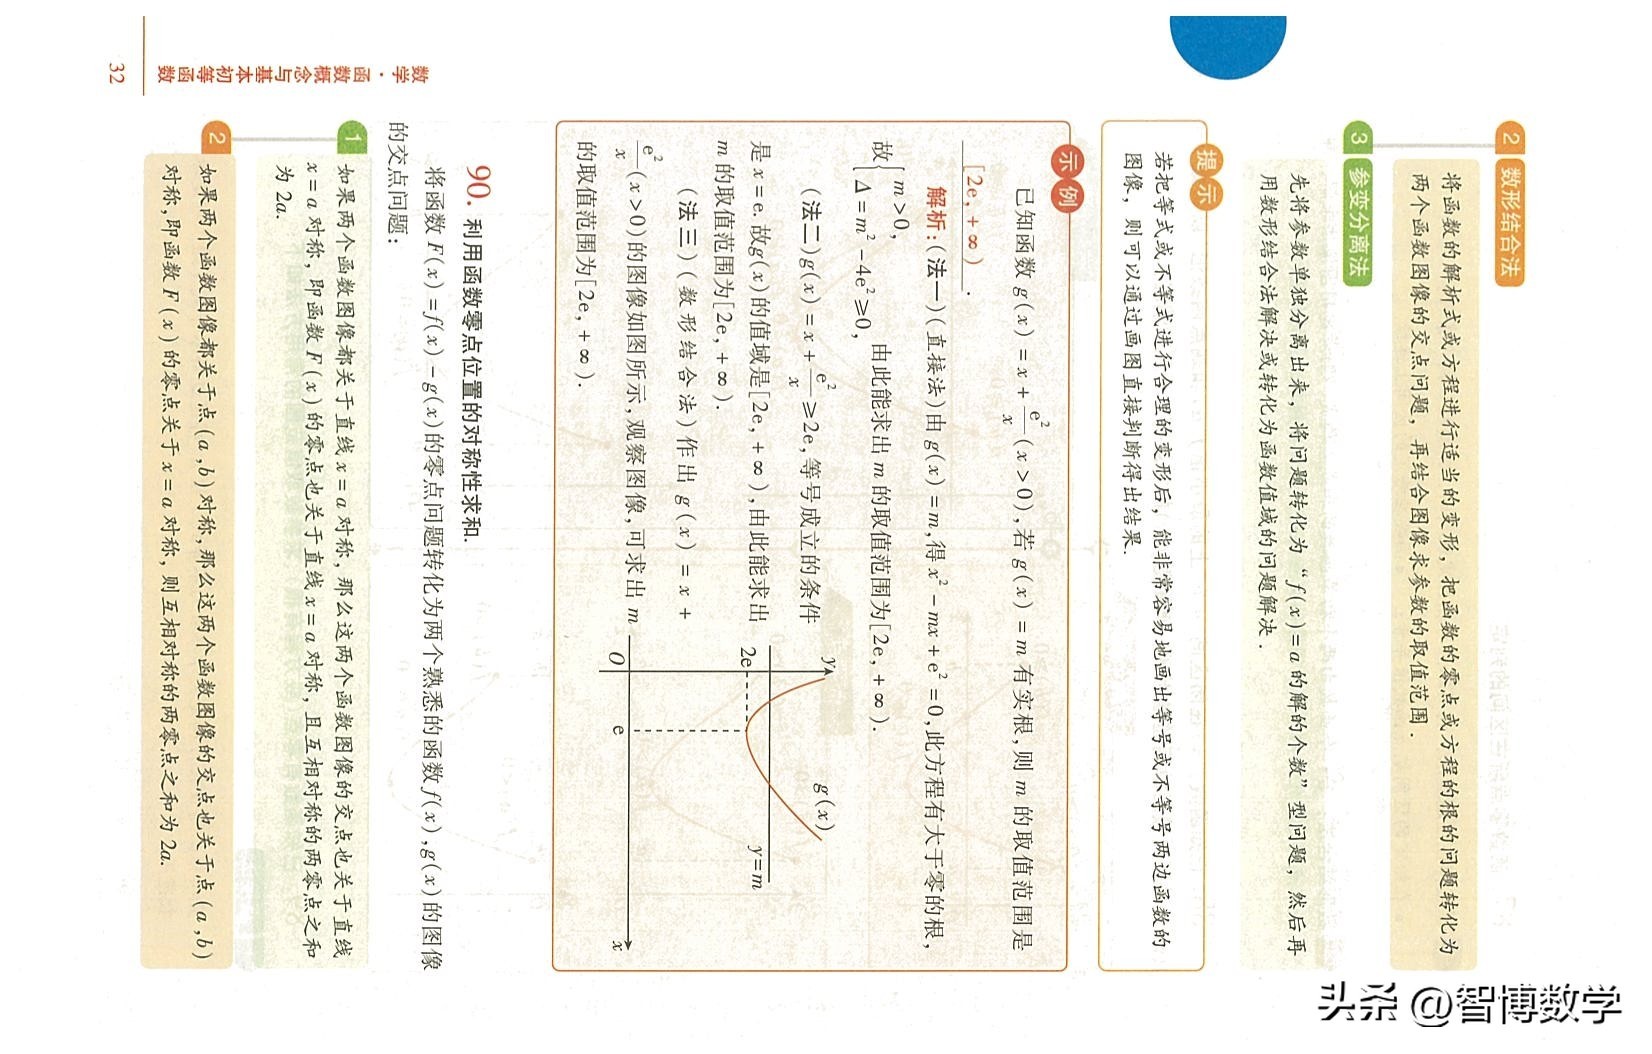 2 数形结合法
将函数的解析式或方程进行适当的变形，把函数的零点或方程的根的问题转化为
两个函数图像的交点问题，再结合图像求参数的取值范围.
3 参变分离法
先将参数单独分离出来，将问题转化为“f(x)=a的解的个数”型问题，然后再
用数形结合法解决或转化为函数值域的问题解决.
提示
若把等式或不等式进行合理的变形后，能非常容易地画出等号或不等号两边函数的
图像，则可以通过画图直接判断得出结果.
示例
已知函数g(x)=x+e²/x(x>0),若g(x)=m有实根,则m的取值范围是
[2e,+∞).
解析:(法一)(直接法)由g(x)=m,得x²-mx+e²=0,此方程有大于零的根,
故{m>0, Δ=m²-4e²≥0, 由此能求出m的取值范围为[2e,+∞).
(法二)g(x)=x+e²/x≥2e,等号成立的条件
是x=e.故g(x)的值域是[2e,+∞),由此能求出
m的取值范围为[2e,+∞).
(法三)(数形结合法)作出g(x)=x+
e²/x(x>0)的图像如图所示,观察图像,可求出m
的取值范围为[2e,+∞).
y
g(x)
2e
y=m
O
e
x
90. 利用函数零点位置的对称性求和.
将函数F(x)=f(x)-g(x)的零点问题转化为两个熟悉的函数f(x),g(x)的图像
的交点问题:
1 如果两个函数图像都关于直线x=a对称，那么这两个函数图像的交点也关于直线
x=a对称，即函数F(x)的零点也关于直线x=a对称，且互相对称的两零点之和
为2a.
2 如果两个函数图像都关于点(a,b)对称,那么这两个函数图像的交点也关于点(a,b)
对称,即函数F(x)的零点关于x=a对称，则互相对称的两零点之和为2a.
数学·函数概念与基本初等函数
32
头条 @智博数学